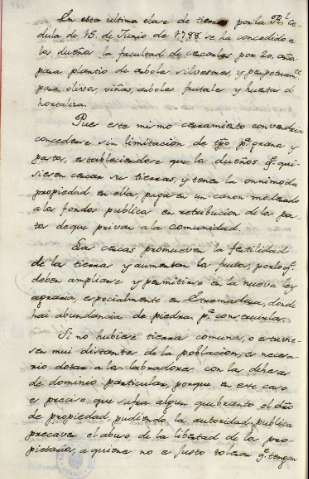 En esta ultima clase de tierras por la Rl. Ce
dula de 15. de Junio de 1788 se ha concedido a
los dueños la facultad de cercarlas por 20. años
para plantio de arboles silvestres, y perpetuamte.
para olivos, viñas, arboles frutales y huertas de
hortaliza.
Pues este mismo cerramiento convendria
concederse sin limitacion de tpo pa. granos y
pastos, estableciendose que los dueños qe. qui-
siesen cercar sus tierras, y tener la omnimoda
propiedad en ellas, paguen un canon moderado
a los fondos publicos en retribucion de los pas
tos de que privan a la comunidad.
Las cercas promueven la fertilidad
de las tierras y aumentan los frutos, por lo qe.
deben ampliarse y permitirse en la nueva ley
agraria, especialmente en Extremadura, donde
hai abundancia de piedras pa. construirlas.
Si no hubiere tierras comunes, o estuvie-
sen mui distantes de la poblacion, es necesa-
rio dotar a los labradores con las dehesas
de dominio particular, porque en este caso
es preciso, que sufra algun quebranto el dro
de propiedad, pudiendo la autoridad publica
precaver el abuso de la libertad de los pro-
pietarios, a quienes no es justo tolerar qe. tengan